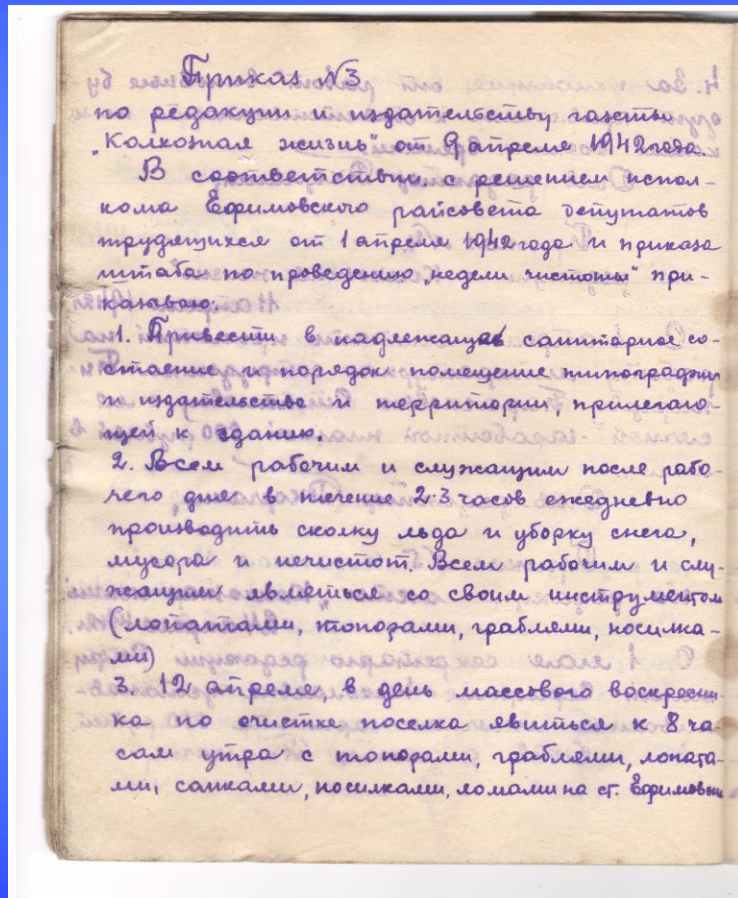 Приказ №3
по редакции и издательству газеты
„Колхозная жизнь" от 9 апреля 1942 года.
В соответствии с решением испол-
кома Ефимовского райсовета депутатов
трудящихся от 1 апреля 1942 года и приказа
штаба по проведению „недели чистоты" при-
казываю:
1. Привести в надлежащее санитарное со-
стояние и порядок помещение типографии
и издательства и территории, прилегаю-
щей к зданию.
2. Всем рабочим и служащим после рабо-
чего дня в течение 2-3 часов ежедневно
производить сколку льда и уборку снега,
мусора и нечистот. Всем рабочим и слу-
жащим являться со своим инструментом
(лопатами, топорами, граблями, носилка-
ми)
3. 12 апреля, в день массового воскресни-
ка по очистке поселка явиться к 8 ча-
сам утра с топорами, граблями, лопата-
ми, санками, носилками, ломами на ст.